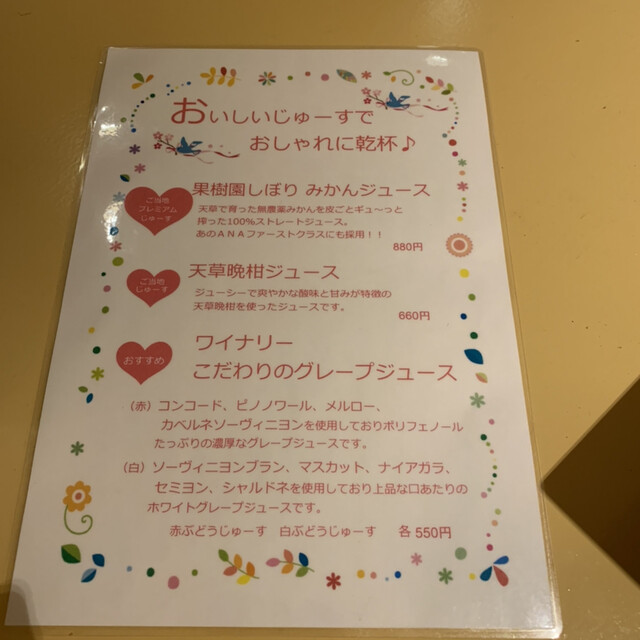 おいしいじゅーすで
おしゃれに乾杯♪
ご当地
プレミアム
じゅーす
果樹園しぼり みかんジュース
天草で育った無農薬みかんを皮ごとギュ～っと
搾った100%ストレートジュース。
あのANAファーストクラスにも採用！！
880円
ご当地
じゅーす
天草晩柑ジュース
ジューシーで爽やかな酸味と甘みが特徴の
天草晩柑を使ったジュースです。
660円
おすすめ
ワイナリー
こだわりのグレープジュース
（赤）コンコード、ピノノワール、メルロー、
カベルネソーヴィニヨンを使用しておりポリフェノール
たっぷりの濃厚なグレープジュースです。
（白）ソーヴィニヨンブラン、マスカット、ナイアガラ、
セミヨン、シャルドネを使用しており上品な口あたりの
ホワイトグレープジュースです。
赤ぶどうじゅーす 白ぶどうじゅーす 各 550円